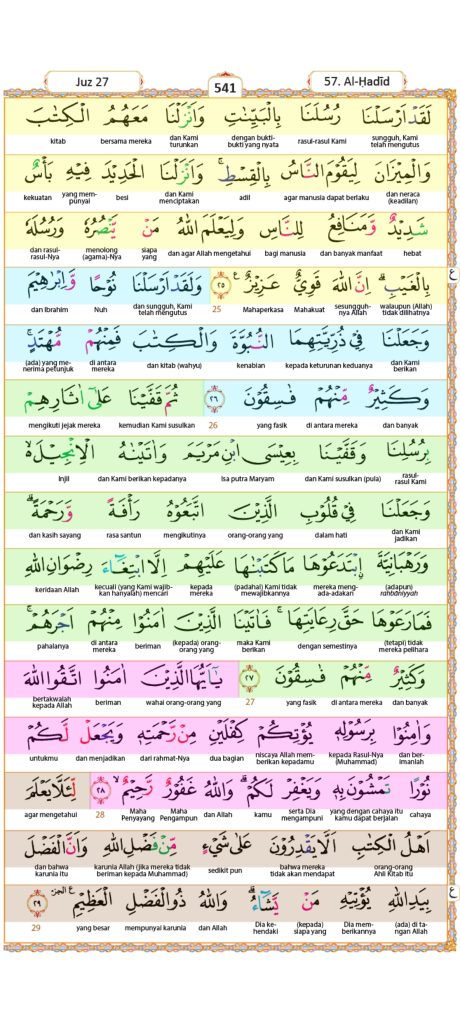 Juz 27
541
57. Al-Ḥadīd
لَقَدْ اَرْسَلْنَا رُسُلَنَا بِالْبَيِّنٰتِ وَاَنْزَلْنَا مَعَهُمُ الْكِتٰبَ
sungguh, Kami telah mengutus rasul-rasul Kami dengan bukti-bukti yang nyata dan Kami turunkan bersama mereka kitab
وَالْمِيْزَانَ لِيَقُوْمَ النَّاسُ بِالْقِسْطِۚ وَاَنْزَلْنَا الْحَدِيْدَ فِيْهِ بَأْسٌ
dan neraca (keadilan) agar manusia dapat berlaku adil dan Kami menciptakan besi yang mempunyai kekuatan
شَدِيْدٌ وَّمَنَافِعُ لِلنَّاسِ وَلِيَعْلَمَ اللّٰهُ مَنْ يَّنْصُرُهٗ وَرُسُلَهٗ
hebat dan banyak manfaat bagi manusia dan agar Allah mengetahui siapa yang menolong (agama)-Nya dan rasul-rasul-Nya
بِالْغَيْبِۗ اِنَّ اللّٰهَ قَوِيٌّ عَزِيْزٌ ࣖ ٢٥ وَلَقَدْ اَرْسَلْنَا نُوْحًا وَّاِبْرٰهِيْمَ
walaupun (Allah) tidak dilihatnya sesungguhnya Allah Mahakuat Mahaperkasa 25 dan sungguh, Kami telah mengutus Nuh dan Ibrahim
وَجَعَلْنَا فِيْ ذُرِّيَّتِهِمَا النُّبُوَّةَ وَالْكِتٰبَ فَمِنْهُمْ مُّهْتَدٍۚ
dan Kami berikan kepada keturunan keduanya kenabian dan kitab (wahyu) di antara mereka (ada) yang menerima petunjuk
وَكَثِيْرٌ مِّنْهُمْ فٰسِقُوْنَ ٢٦ ثُمَّ قَفَّيْنَا عَلٰٓى اٰثَارِهِمْ
dan banyak di antara mereka yang fasik 26 kemudian Kami susulkan mengikuti jejak mereka
بِرُسُلِنَا وَقَفَّيْنَا بِعِيْسَى ابْنِ مَرْيَمَ وَاٰتَيْنٰهُ الْاِنْجِيْلَ ەۙ
rasul-rasul Kami dan Kami susulkan (pula) Isa putra Maryam dan Kami berikan kepadanya Injil
وَجَعَلْنَا فِيْ قُلُوْبِ الَّذِيْنَ اتَّبَعُوْهُ رَأْفَةً وَّرَحْمَةًۗ
dan Kami jadikan dalam hati orang-orang yang mengikutinya rasa santun dan kasih sayang
وَرَهْبَانِيَّةَ ِۨابْتَدَعُوْهَا مَا كَتَبْنٰهَا عَلَيْهِمْ اِلَّا ابْتِغَاۤءَ رِضْوَانِ اللّٰهِ
(adapun) rahbāniyyah mereka mengada-adakan (padahal) Kami tidak mewajibkannya kepada mereka kecuali (yang Kami wajibkan hanyalah) mencari keridaan Allah
فَمَا رَعَوْهَا حَقَّ رِعَايَتِهَاۚ فَاٰتَيْنَا الَّذِيْنَ اٰمَنُوْا مِنْهُمْ اَجْرَهُمْۚ
(tetapi) tidak mereka pelihara dengan semestinya maka Kami berikan (kepada) orang-orang yang beriman di antara mereka pahalanya
وَكَثِيْرٌ مِّنْهُمْ فٰسِقُوْنَ ٢٧ يٰٓاَيُّهَا الَّذِيْنَ اٰمَنُوا اتَّقُوا اللّٰهَ
dan banyak di antara mereka yang fasik 27 wahai orang-orang yang beriman bertakwalah kepada Allah
وَاٰمِنُوْا بِرَسُوْلِهٖ يُؤْتِكُمْ كِفْلَيْنِ مِنْ رَّحْمَتِهٖ وَيَجْعَلْ لَّكُمْ
dan berimanlah kepada Rasul-Nya (Muhammad) niscaya Allah memberikan kepadamu dua bagian dari rahmat-Nya dan menjadikan untukmu
نُوْرًا تَمْشُوْنَ بِهٖ وَيَغْفِرْ لَكُمْۗ وَاللّٰهُ غَفُوْرٌ رَّحِيْمٌۙ ٢٨ لِّئَلَّا يَعْلَمَ
cahaya yang dengan cahaya itu kamu dapat berjalan serta Dia mengampuni kamu dan Allah Maha Pengampun Maha Penyayang 28 agar mengetahui
اَهْلُ الْكِتٰبِ اَلَّا يَقْدِرُوْنَ عَلٰى شَيْءٍ مِّنْ فَضْلِ اللّٰهِ وَاَنَّ الْفَضْلَ
orang-orang Ahli Kitab itu bahwa mereka tidak akan mendapat sedikit pun karunia Allah (jika mereka tidak beriman kepada Muhammad) dan bahwa karunia itu
بِيَدِ اللّٰهِ يُؤْتِيْهِ مَنْ يَّشَاۤءُۗ وَاللّٰهُ ذُو الْفَضْلِ الْعَظِيْمِ ࣖ الجزء ٢٩
(ada) di tangan Allah Dia memberikannya (kepada) siapa yang Dia kehendaki dan Allah mempunyai karunia yang besar 29
ع
ع